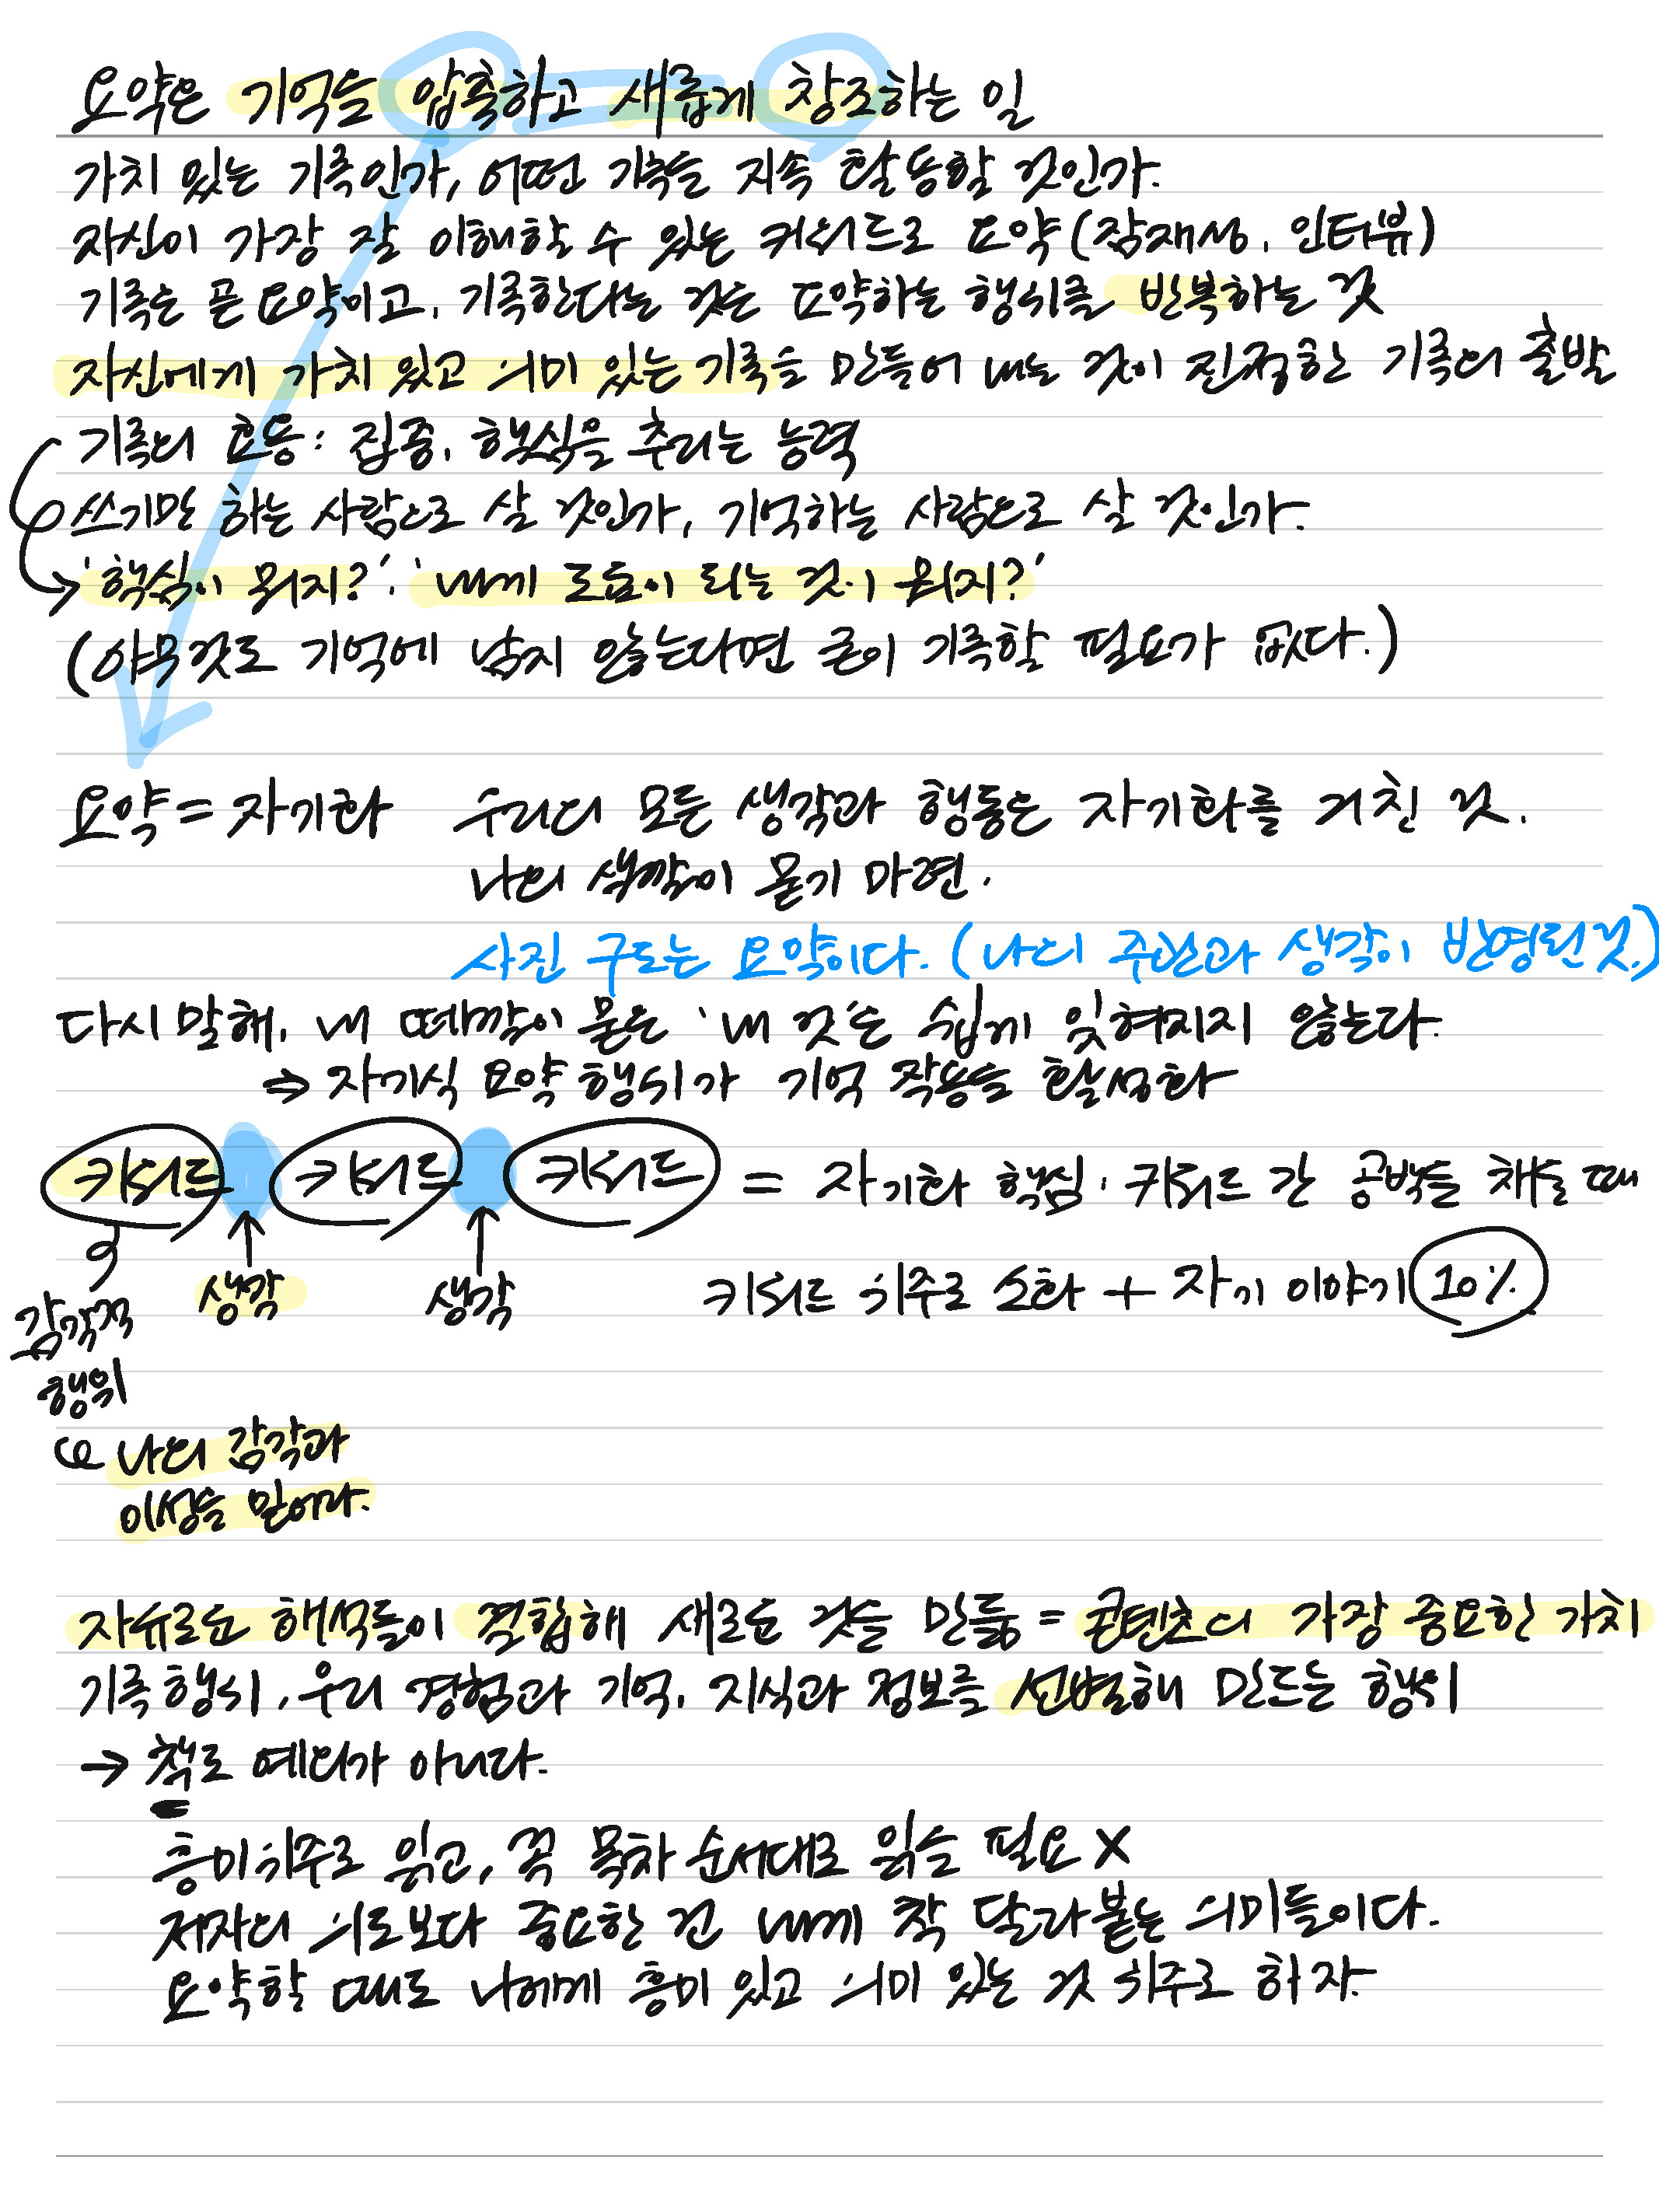 요약은 기억을 압축하고 새롭게 창조하는 일
가치 있는 기록인가, 어떤 기록을 지속 활용할 것인가.
자신이 가장 잘 이해할 수 있는 키워드로 요약(잠재성, 인터뷰)
기록은 곧 요약이고, 기록한다는 것은 요약하는 행위를 반복하는 것
자신에게 가치 있고 의미 있는 기록을 만들어 내는 것이 진정한 기록의 출발
기록의 효능: 집중, 핵심을 추리는 능력
쓰기만 하는 사람으로 살 것인가, 기억하는 사람으로 살 것인가.
→ '핵심이 뭐지?', '내게 도움이 되는 것이 뭐지?'
(아무것도 기억에 남지 않는다면 굳이 기록할 필요가 없다.)
요약 = 자기화 우리의 모든 생각과 행동은 자기화를 거친 것.
나의 생각이 묻기 마련.
사진 구도는 요약이다. (나의 주관과 생각이 반영된 것.)
다시 말해, 내 때깔이 묻은 '내 것'은 쉽게 잊혀지지 않는다.
⇒ 자기식 요약 행위가 기억 작용을 활성화
키워드 키워드 키워드 = 자기화 핵심, 키워드 간 공백을 채울 때
생각 생각 키워드 위주로 소화 + 자기 이야기 10%
감각적
행위
나의 감각과
이성을 믿어라.
자유로운 해석들이 결합해 새로운 것을 만듦 = 콘텐츠의 가장 중요한 가치
기록 행위, 우리 경험과 기억, 지식과 정보를 선별해 만드는 행위
→ 책도 예외가 아니다.
흥미 위주로 읽고, 꼭 목차 순서대로 읽을 필요 X
저자의 의도보다 중요한 건 내게 착 달라붙는 의미들이다.
요약할 때도 나에게 흥미 있고 의미 있는 것 위주로 하자.